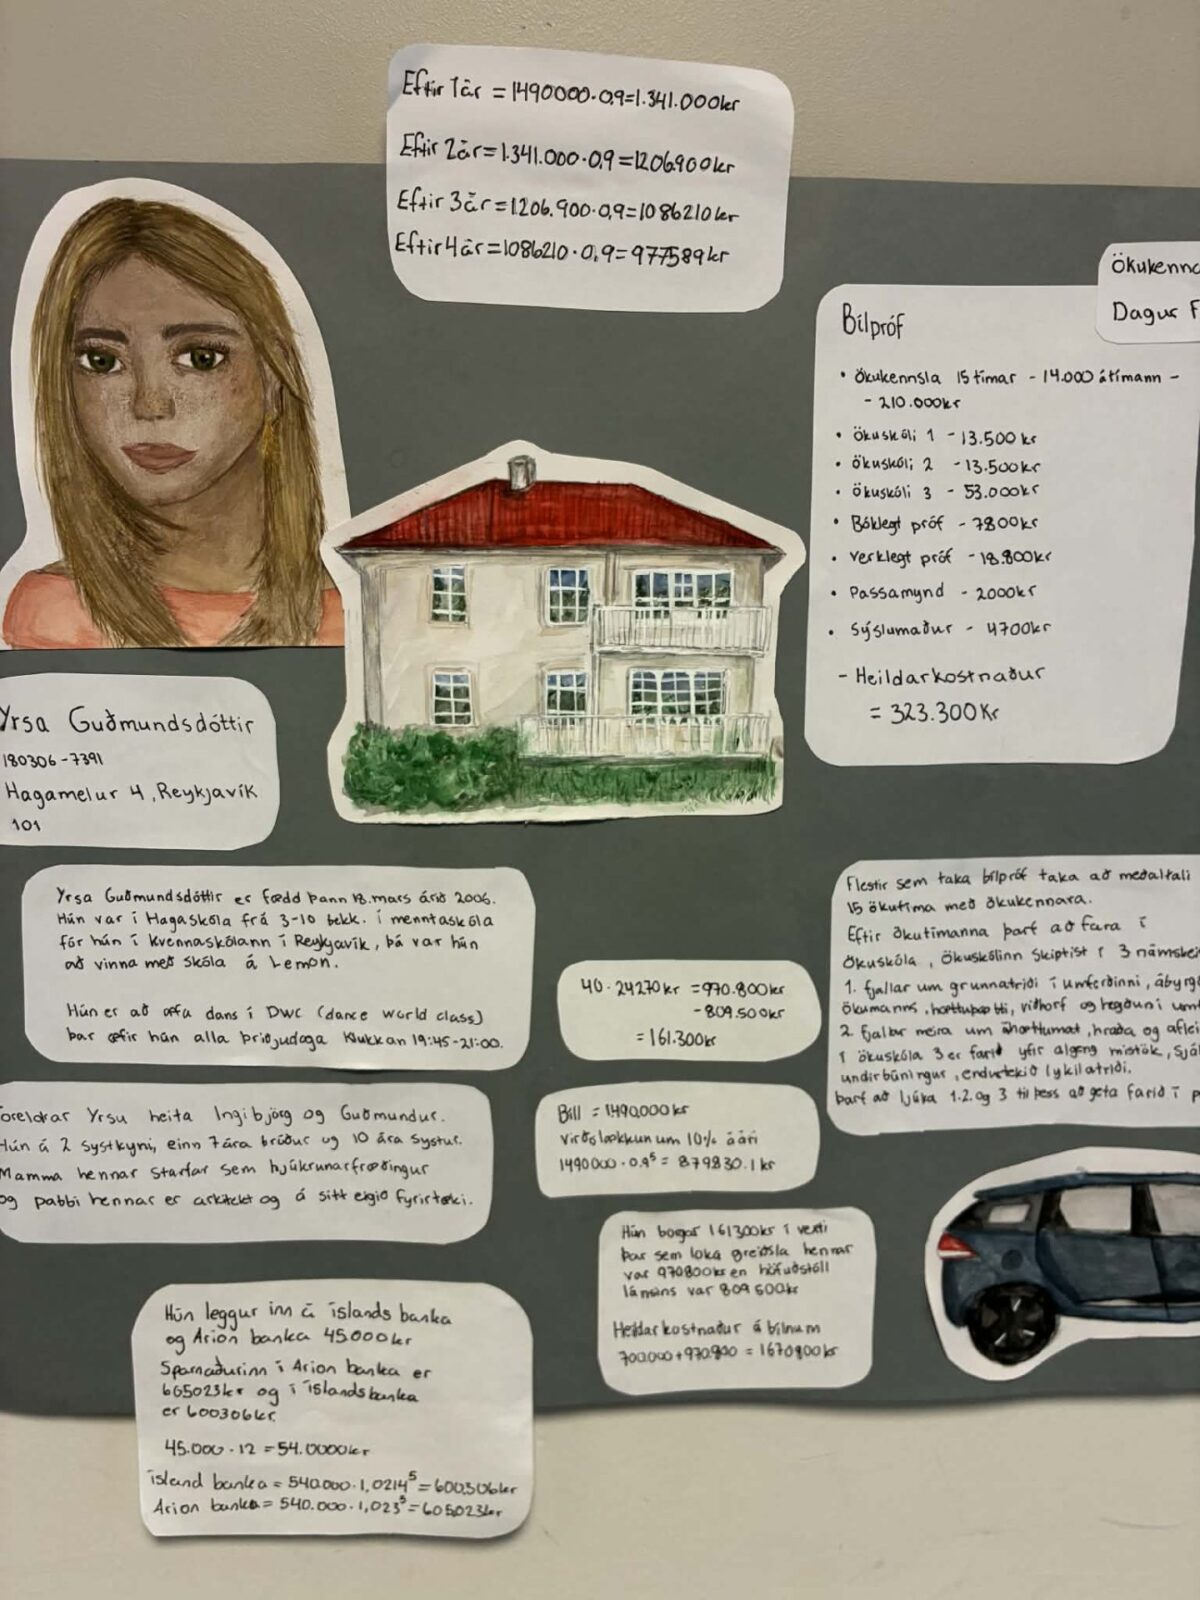 Eftir 1ár = 1490000·0,9=1.341.000kr
Eftir 2ár=1.341.000·0,9=1206.900kr
Eftir 3ár=1.206.900·0,9=1086210kr
Eftir 4ár=1086210·0,9=977589kr
Ökukenn
Dagur F
Bílpróf
• Ökukennsla 15 tímar - 14.000 átímann -
- 210.000kr
• Ökuskóli 1 - 13.500 kr
• Ökuskóli 2 - 13.500kr
• Ökuskóli 3 - 53.000kr
• Bóklegt próf - 7800kr
• Verklegt próf - 18.800kr
• Passamynd - 2000kr
• Sýslumaður - 4700kr
- Heildarkostnaður
= 323.300Kr
Yrsa Guðmundsdóttir
180306-7391
Hagamelur 4, Reykjavík
101
Yrsa Guðmundsdóttir er fædd þann 18.mars árið 2006.
Hún var í Hagaskóla frá 3-10 bekk. í menntaskóla
fór hún í kvennaskólann í Reykjavík, þá var hún
að vinna með skóla á Lemon.
Hún er að æfa dans í DWC (dance world class)
þar æfir hún alla þriðjudaga klukkan 19:45-21:00.
Foreldrar Yrsu heita Ingibjörg og Guðmundur.
Hún á 2 systkyni, einn 7ára bróður og 10 ára systur.
Mamma hennar starfar sem hjúkrunarfræðingur
og pabbi hennar er arkitekt og á sitt eigið fyrirtæki.
40·24270kr =970.800kr
-809.500kr
= 161.300kr
Bíll = 1490.000kr
virðislækkun um 10% á ári
1490000·0.9⁵= 879830.1 kr
Hún borgar 161300kr í vexti
þar sem loka greiðsla hennar
var 970800kr en höfuðstóll
lánsins var 809500kr
Heildarkostnaður á bílnum
700.000+970.800 = 1670800kr
Flestir sem taka bílpróf taka að meðaltali
15 ökutíma með ökukennara.
Eftir ökutímanna þarf að fara í
ökuskóla, ökuskólinn skiptist í 3 námskei
1. fjallar um grunnatriði í umferðinni, ábyrg
ökumanns, viðhorf og hegðun í umf
2. fjallar meira um áhættumat, hraða og aflei
í ökuskóla 3 er farið yfir algeng mistök, sjál
undirbúningur, endurtekið lykilatriði.
þarf að ljúka 1.2. og 3 til þess að geta farið í p
Hún leggur inn á íslands banka
og Arion banka 45.000kr
Sparnaðurinn í Arion banka er
605023kr og í íslandsbanka
er 600306kr.
45.000·12 =54.0000kr
ísland banka = 540.000·1,0214⁵=600.306kr
Arion banka= 540.000·1,023⁵=605.023kr